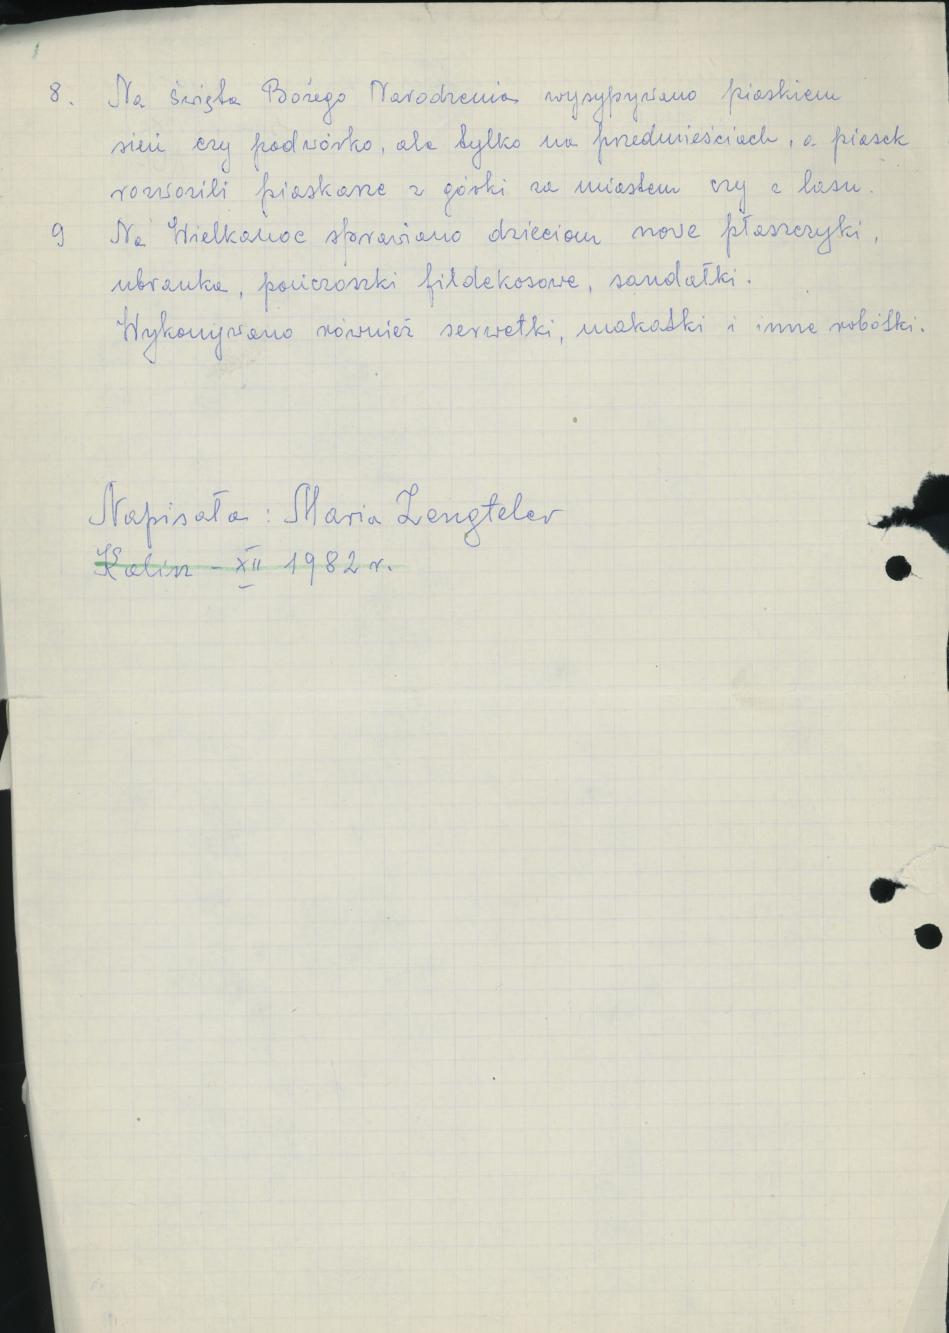 8. Na święta Bożego Narodzenia wysypywano piaskiem
sień czy podwórko, ale tylko na przedmieściach, a piasek
rozwozili piaskarze z górki za miastem czy z lasu.
9 Na Wielkanoc sprawiano dzieciom nowe płaszczyki,
ubranka, pończoszki fildekosowe, sandałki.
Wykonywano również serwetki, makatki i inne robótki.
Napisała: Maria Zengteler
Kalisz - XII 1982 r.